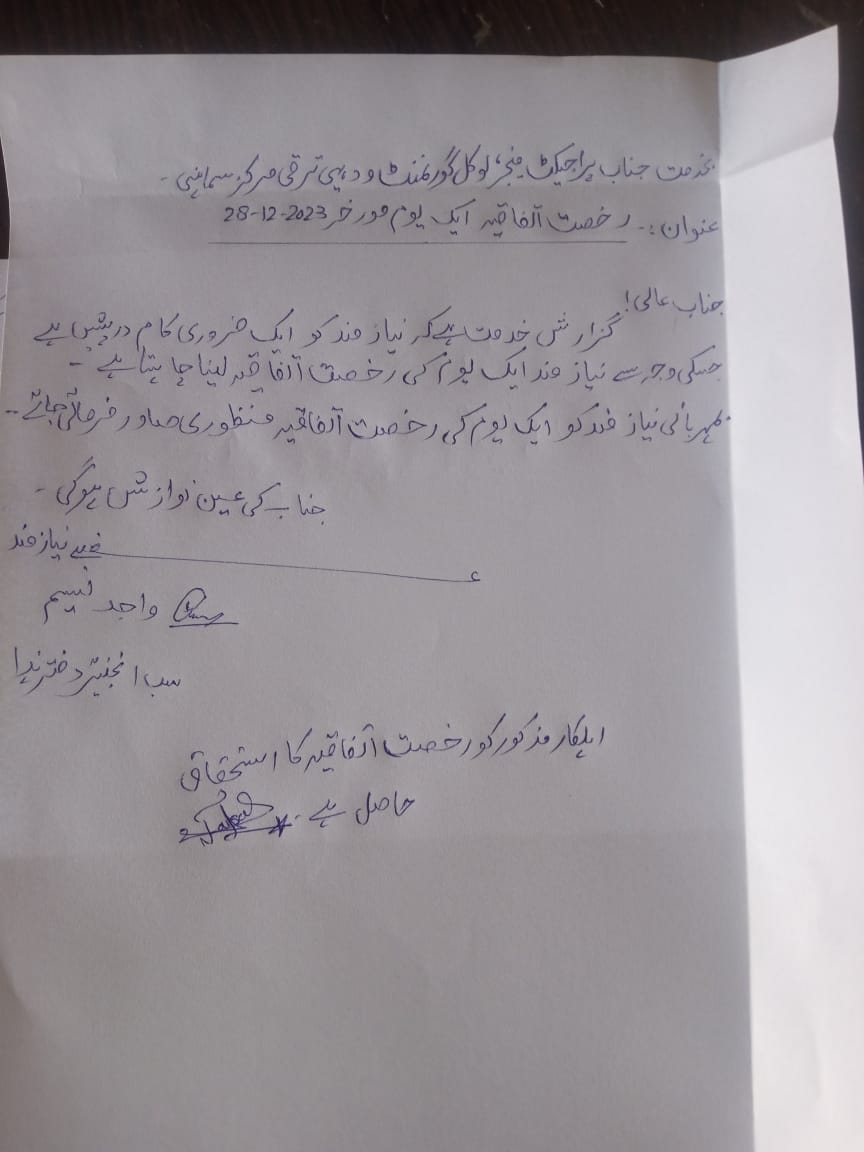 بخدمت جناب پراجیکٹ منیجر، لوکل گورنمنٹ و دیہی ترقی مرکز سماہنی۔
عنوان:۔ رخصت اتفاقیہ ایک یوم مورخہ 28-12-2023
جناب عالی!
گزارش خدمت ہے کہ نیاز مند کو ایک ضروری کام درپیش ہے
جسکی وجہ سے نیاز مند ایک یوم کی رخصت اتفاقیہ لینا چاہتا ہے۔
مہربانی نیاز مند کو ایک یوم کی رخصت اتفاقیہ منظوری صادر فرمائی جائے۔
جناب کی عین نوازش ہوگی۔
نیاز مند
واجد نسیم
سب انجنیئر دفتر ہذا
اہلکار مذکور کو رخصت اتفاقیہ کا استحقاق
حاصل ہے۔